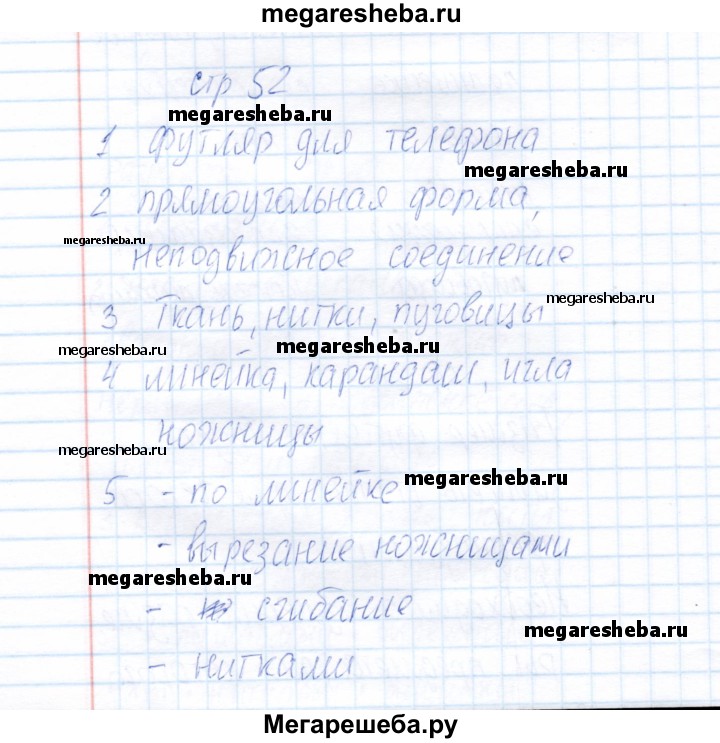 megaresheba.ru
стр 52
megaresheba.ru
1 футляр для телефона
megaresheba.ru
2 прямоугольная форма,
megaresheba.ru
неподвижное соединение
megaresheba.ru
3 Ткань, нитки, пуговицы
megaresheba.ru
megaresheba.ru
4 линейка, карандаш, игла
ножницы
megaresheba.ru
5 - по линейке
megaresheba.ru
- вырезание ножницами
megaresheba.ru
- сгибание
megaresheba.ru
- нитками
Мегарешеба.ру